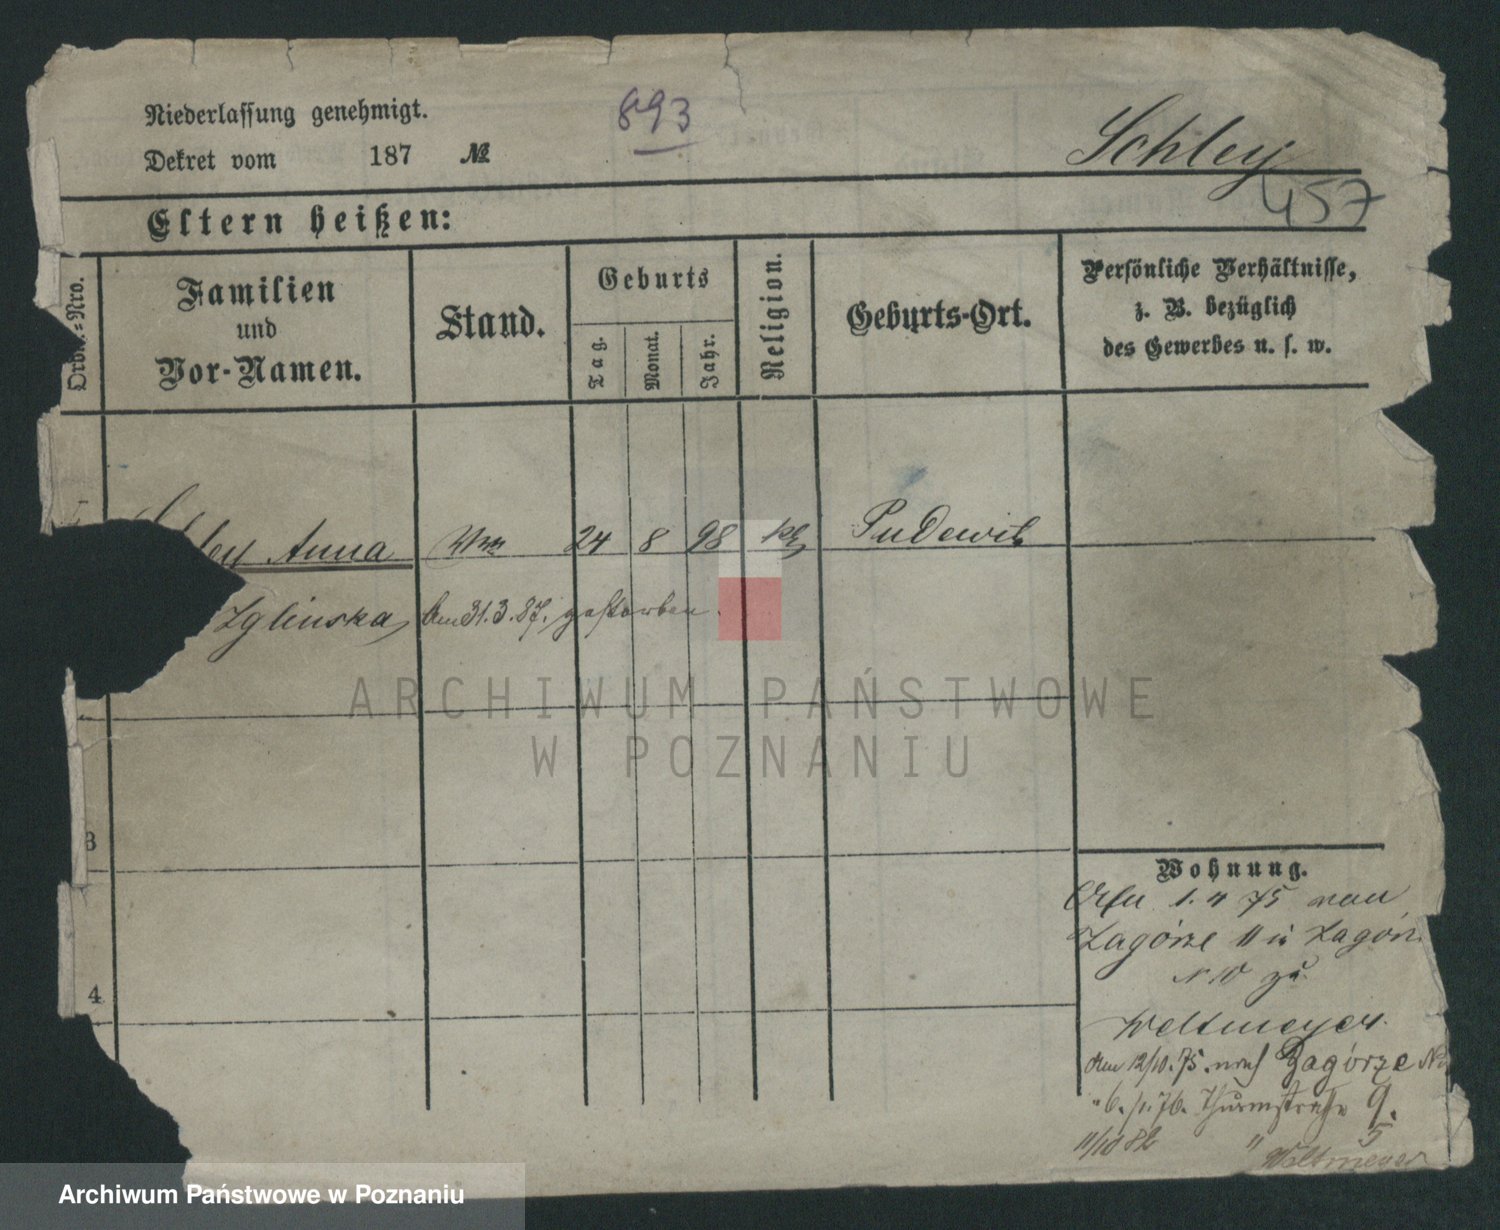 Niederlassung genehmigt.
893
Dekret vom 187 №
Schley
457
Eltern heißen:
Ordn.=Nro.
Familien
und
Vor-Namen.
Stand.
Geburts
Tag.
Monat.
Jahr.
Religion.
Geburts-Ort.
Persönliche Verhältnisse,
z. B. bezüglich
des Gewerbes u. s. w.
ley Anna 24 8 98 kh Pudewitz
Zglinska, am 31.3.87. gestorben.
3
4
Wohnung.
1. 4 75 von
Zagórze 11 in Zagórz
N 10 zu
Weltmeyer.
den 12/10. 75. nach Zagórze No
" 6. /1. 76. Thurmstraße 9.
11/10 82 " 5
Weltmeyer
ARCHIWUM PAŃSTWOWE
W POZNANIU
Archiwum Państwowe w Poznaniu